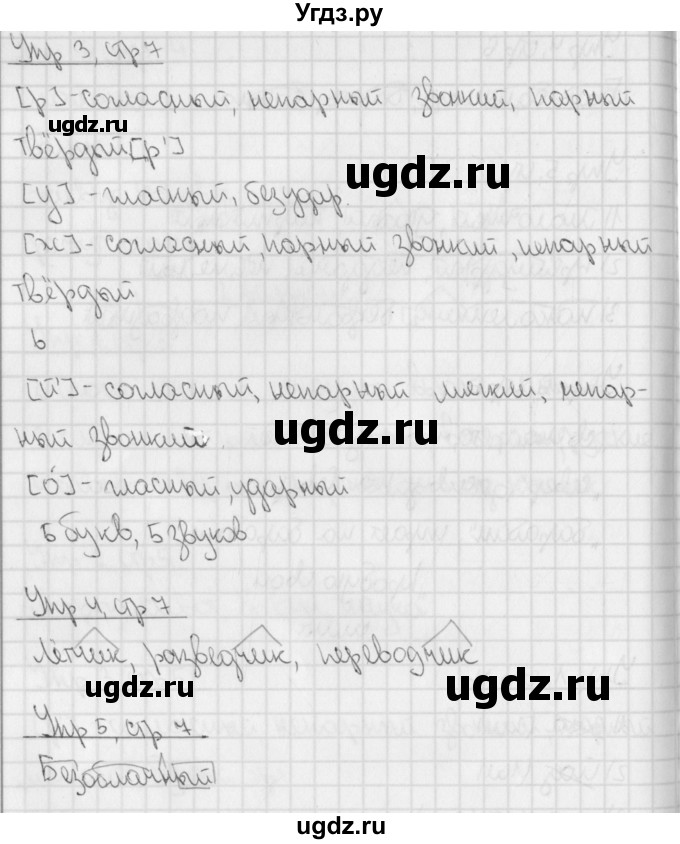 Угдз.ру
Упр 3, стр 7
[р]-согласный, непарный звонкий, парный
твёрдый[р']
[у]-гласный, безудар.
[ж]-согласный, парный звонкий, непарный
твёрдый
ь
[й']-согласный, непарный мягкий, непар-
ный звонкий.
[о́]-гласный, ударный
5 букв, 5 звуков
Упр 4, стр 7
Лётчик, разведчик, переводчик
Упр 5, стр 7
Безоблачный
ugdz.ru
ugdz.ru
ugdz.ru
ugdz.ru
ugdz.ru
ugdz.ru
ugdz.ru
ugdz.ru
ugdz.ru